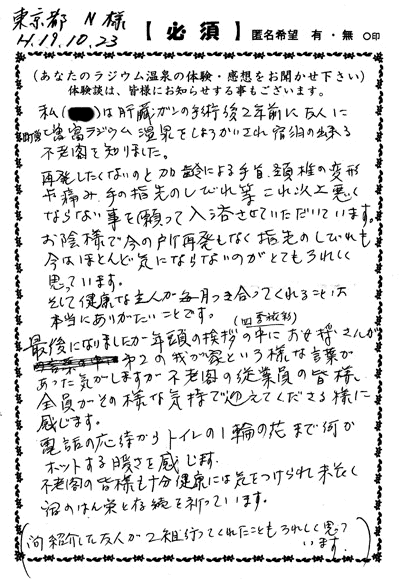 東京都 N 様
H.19.10.23
【必須】 匿名希望 有・無 ○印
(あなたのラジウム温泉の体験・感想をお聞かせ下さい)
体験談は、皆様にお知らせする事もございます。
私( )は肝臓ガンの手術後2年前に友人に
ラジウム温泉をしょうかいされ宿泊の出来る
不老閣を知りました。
再発したくないのと加齢による手首、頚椎の変形
や痛み、手の指先のしびれ等これ以上悪く
ならない事を願って入浴させていただいています。
お陰様で今の所再発もなく指先のしびれも
今はほとんど気にならないのがとてもうれしく
思っています。
そして健康な主人が毎月つき合ってくれることは
本当にありがたいことです。(四季折彩)
最後になりましたが年頭の挨拶の中に お女将さんが
第2の我が家という様な言葉が
あった気がしますが不老閣の従業員の皆様
全員がその様な気持で迎えてくださる様に
感じます。
電話の応待からトイレの1輪の花まで何か
ホットする暖さを感じます。
不老閣の皆様も十分健康には気をつけられ末長く
宿のはん栄と存続を祈っています。
(尚紹介した友人が2組行ってくれたこともうれしく思って
います。)